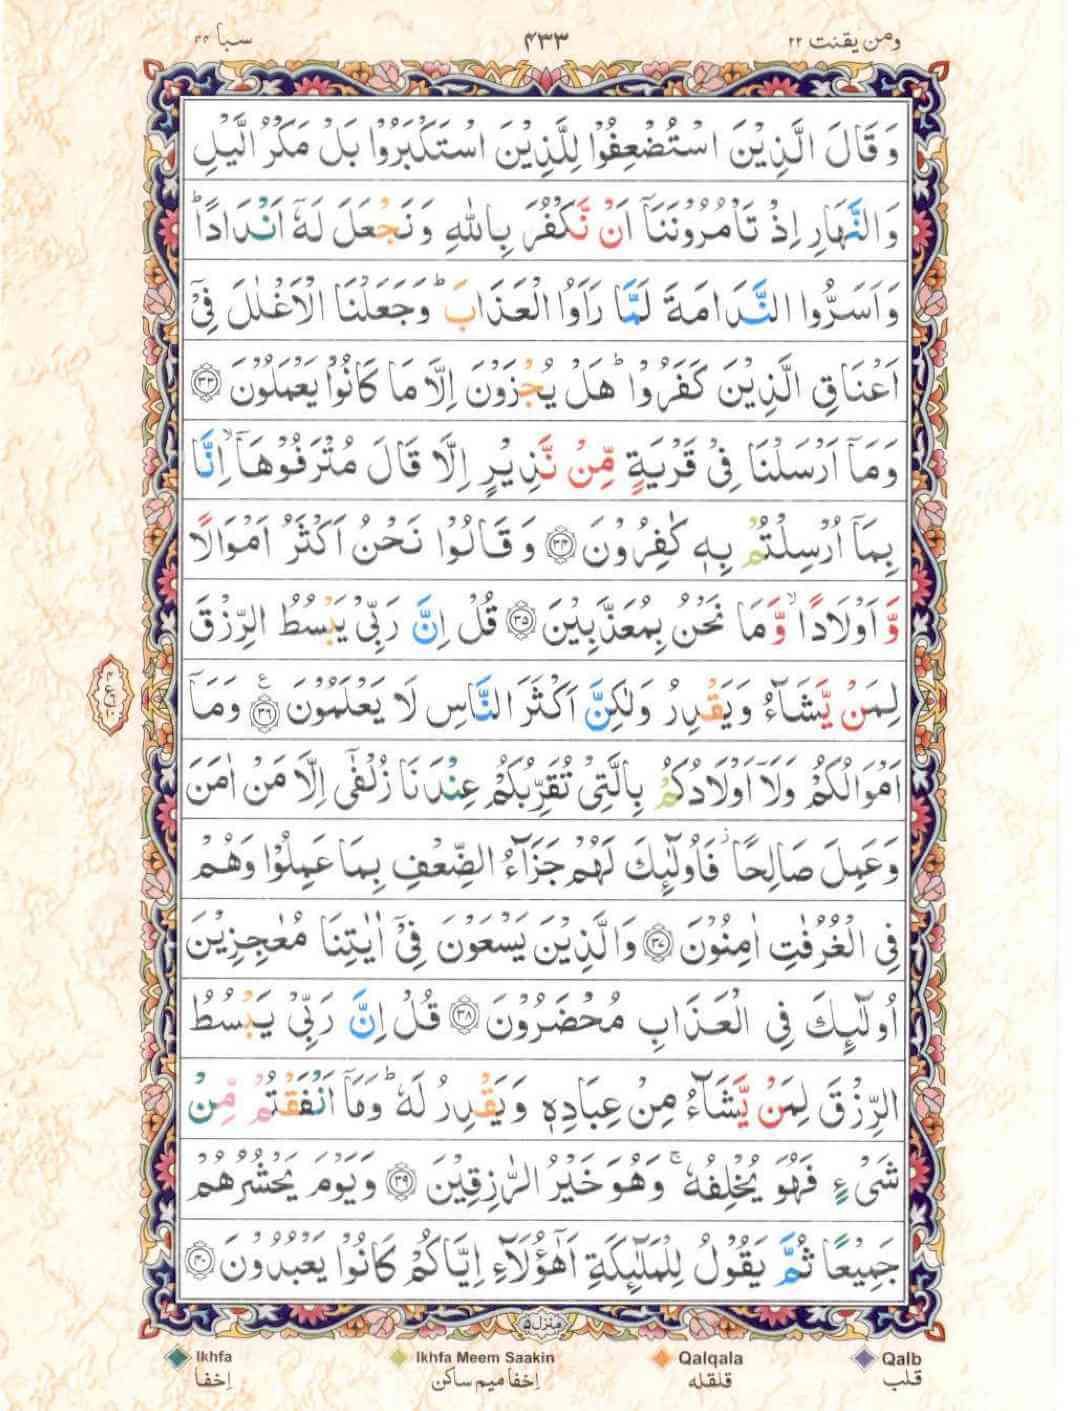 ومن يقنت ۲۲ ۴۳۳ سبا ۳۴
وَ قَالَ الَّذِيْنَ اسْتُضْعِفُوْا لِلَّذِيْنَ اسْتَكْبَرُوْا بَلْ مَكْرُ الَّيْلِ
وَ النَّهَارِ اِذْ تَاْمُرُوْنَنَاۤ اَنْ نَّكْفُرَ بِاللّٰهِ وَ نَجْعَلَ لَهٗۤ اَنْدَادًا ؕ
وَ اَسَرُّوا النَّدَامَةَ لَمَّا رَاَوُا الْعَذَابَ ؕ وَ جَعَلْنَا الْاَغْلٰلَ فِيْۤ
اَعْنَاقِ الَّذِيْنَ كَفَرُوْا ؕ هَلْ يُجْزَوْنَ اِلَّا مَا كَانُوْا يَعْمَلُوْنَ ۝۳۳
وَ مَاۤ اَرْسَلْنَا فِيْ قَرْيَةٍ مِّنْ نَّذِيْرٍ اِلَّا قَالَ مُتْرَفُوْهَاۤ ۙ اِنَّا
بِمَاۤ اُرْسِلْتُمْ بِهٖ كٰفِرُوْنَ ۝۳۴ وَ قَالُوْا نَحْنُ اَكْثَرُ اَمْوَالًا
وَّ اَوْلَادًا ۙ وَّ مَا نَحْنُ بِمُعَذَّبِيْنَ ۝۳۵ قُلْ اِنَّ رَبِّيْ يَبْسُطُ الرِّزْقَ
لِمَنْ يَّشَآءُ وَ يَقْدِرُ وَ لٰكِنَّ اَكْثَرَ النَّاسِ لَا يَعْلَمُوْنَ ۝۳۶ ع وَ مَاۤ
اَمْوَالُكُمْ وَ لَاۤ اَوْلَادُكُمْ بِالَّتِيْ تُقَرِّبُكُمْ عِنْدَنَا زُلْفٰۤى اِلَّا مَنْ اٰمَنَ
وَ عَمِلَ صَالِحًا ؗ فَاُولٰٓئِكَ لَهُمْ جَزَآءُ الضِّعْفِ بِمَا عَمِلُوْا وَ هُمْ
فِي الْغُرُفٰتِ اٰمِنُوْنَ ۝۳۷ وَ الَّذِيْنَ يَسْعَوْنَ فِيْۤ اٰيٰتِنَا مُعٰجِزِيْنَ
اُولٰٓئِكَ فِي الْعَذَابِ مُحْضَرُوْنَ ۝۳۸ قُلْ اِنَّ رَبِّيْ يَبْسُطُ
الرِّزْقَ لِمَنْ يَّشَآءُ مِنْ عِبَادِهٖ وَ يَقْدِرُ لَهٗ ؕ وَ مَاۤ اَنْفَقْتُمْ مِّنْ
شَيْءٍ فَهُوَ يُخْلِفُهٗ ۚ وَ هُوَ خَيْرُ الرّٰزِقِيْنَ ۝۳۹ وَ يَوْمَ يَحْشُرُهُمْ
جَمِيْعًا ثُمَّ يَقُوْلُ لِلْمَلٰٓئِكَةِ اَهٰۤؤُلَآءِ اِيَّاكُمْ كَانُوْا يَعْبُدُوْنَ ۝۴۰
منزل ۵
Ikhfa Ikhfa Meem Saakin Qalqala Qalb
اِخفا اِخفا ميم ساكن قلقله قلب